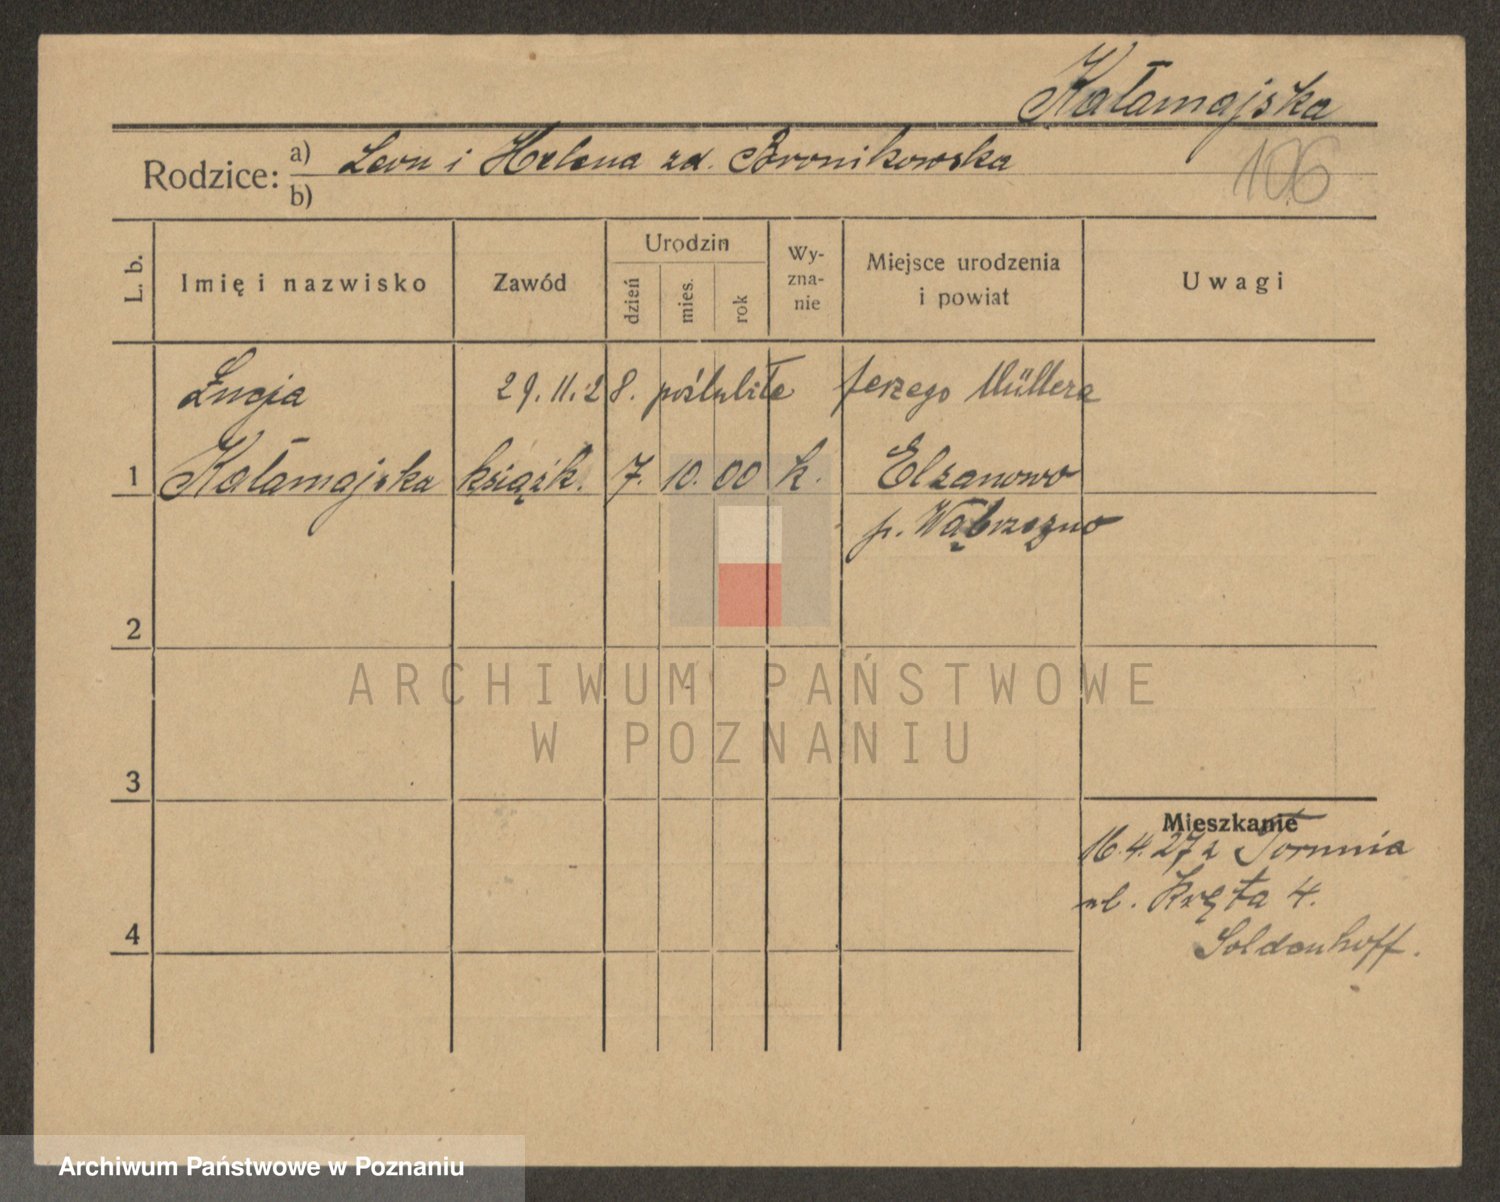 Kałamajska
Rodzice: a) Leon i Helena zd. Bronikowska
b)
106
L. b.
Imię i nazwisko
Zawód
Urodzin
dzień
mies.
rok
Wy-
zna-
nie
Miejsce urodzenia
i powiat
Uwagi
Łucja 29.11.28. poślubiła Jerzego Müllera
1 Kałamajska książk. 7. 10. 00 k. Elzanowo
p. Wąbrzeźno
2
ARCHIWUM PAŃSTWOWE
W POZNANIU
3
Mieszkanie
16.4.27 z Torunia
ul. Kręta 4.
Soldenhoff.
4
Archiwum Państwowe w Poznaniu